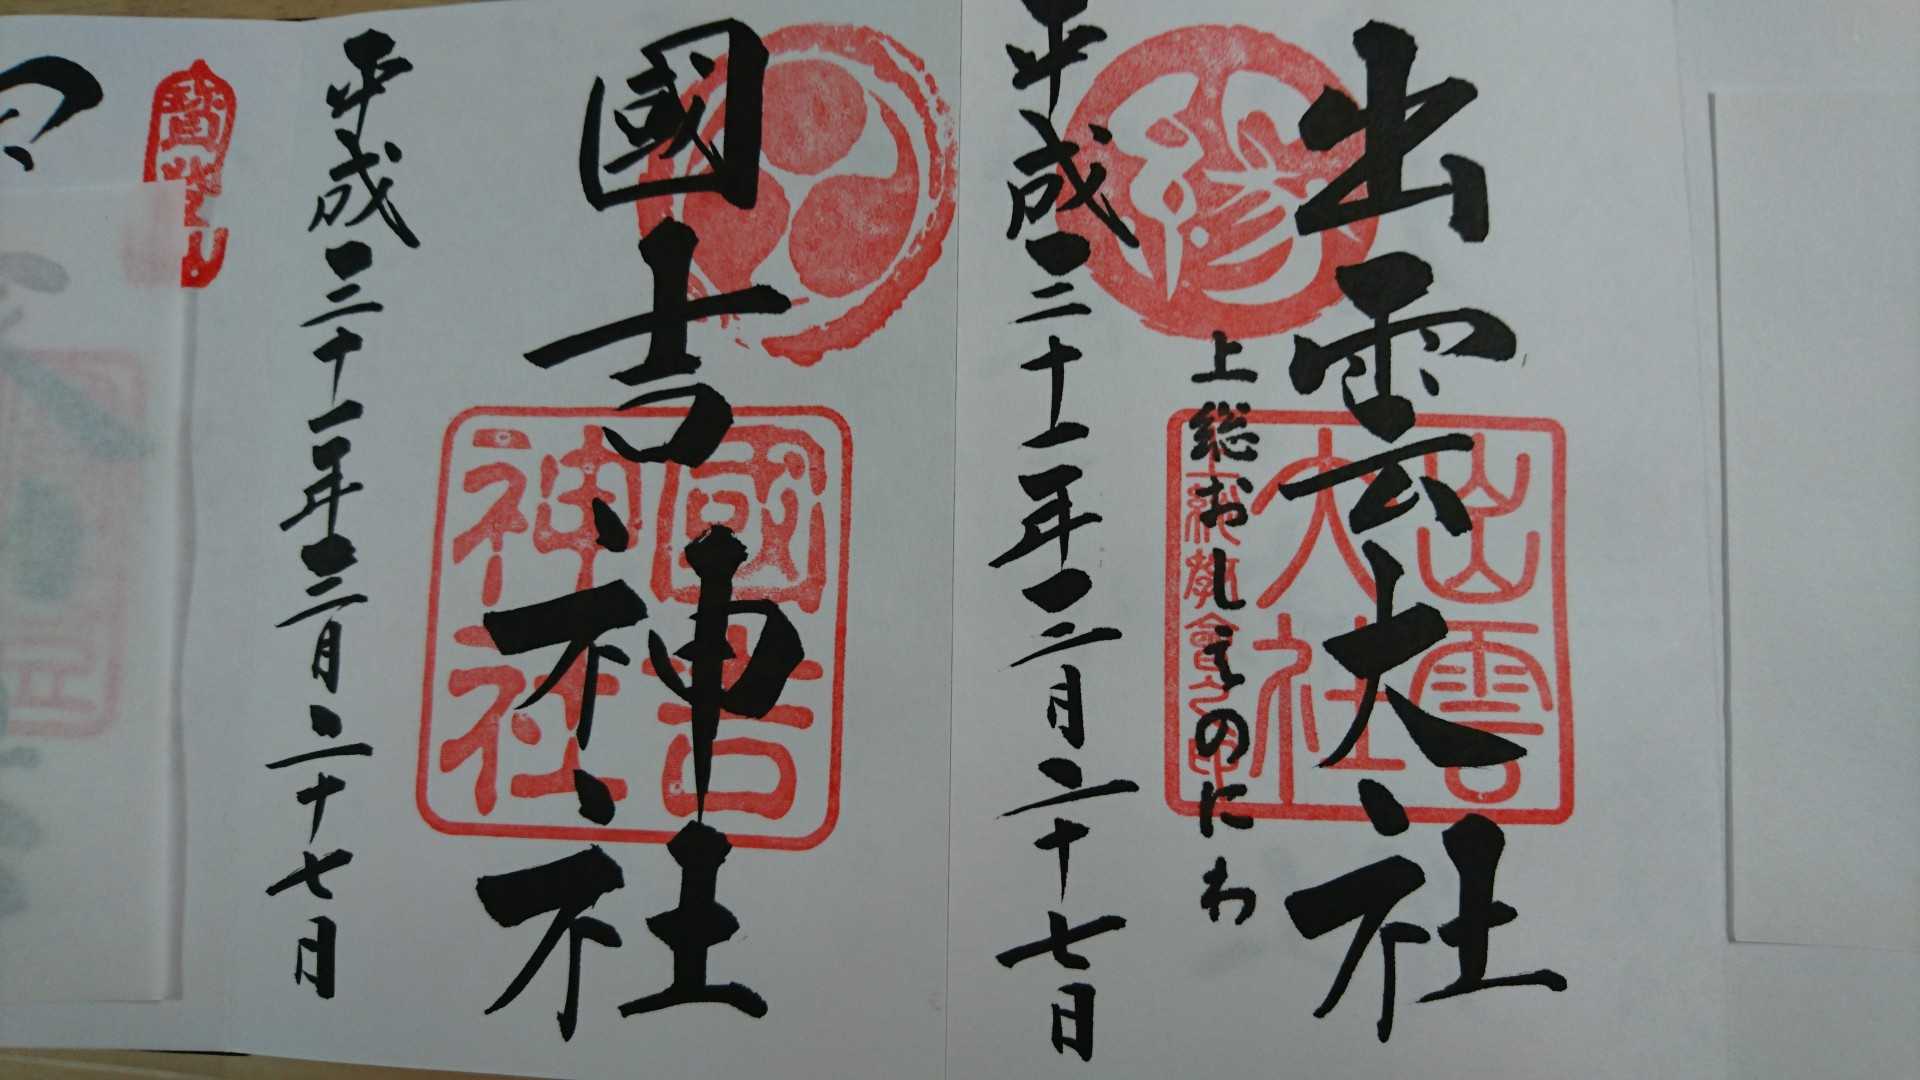 出雲大社
縁
出雲
大社
上総教會之印
上総おしえのにわ
平成三十一年三月二十七日
國吉神社
國吉
神社
平成三十一年三月二十七日